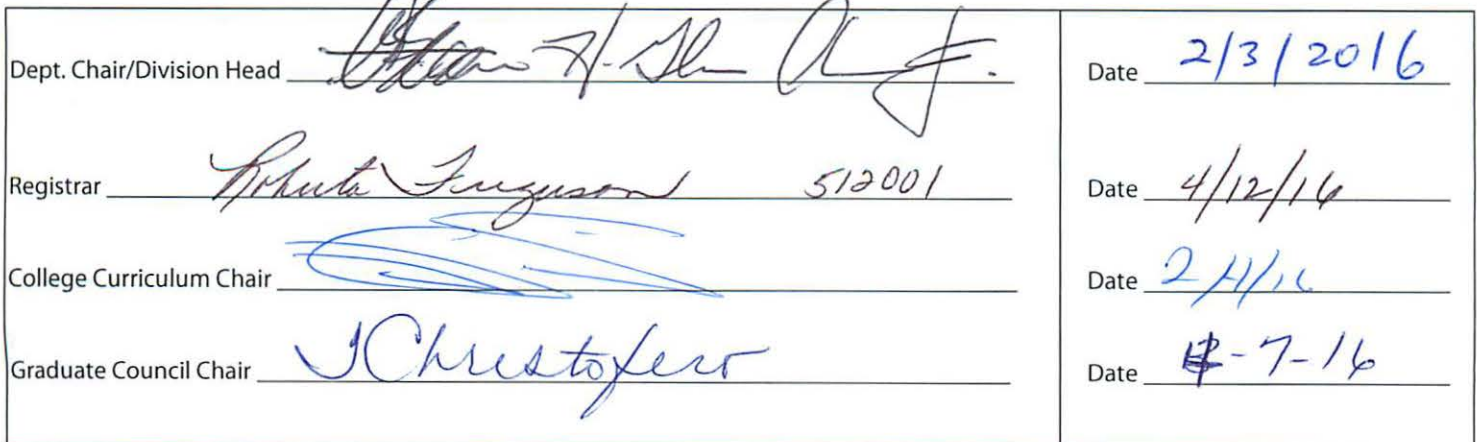 Dept. Chair/Division Head Date 2/3/2016
Registrar Roberta Ferguson 512001 Date 4/12/16
College Curriculum Chair Date
Graduate Council Chair JChristofero Date -7-16